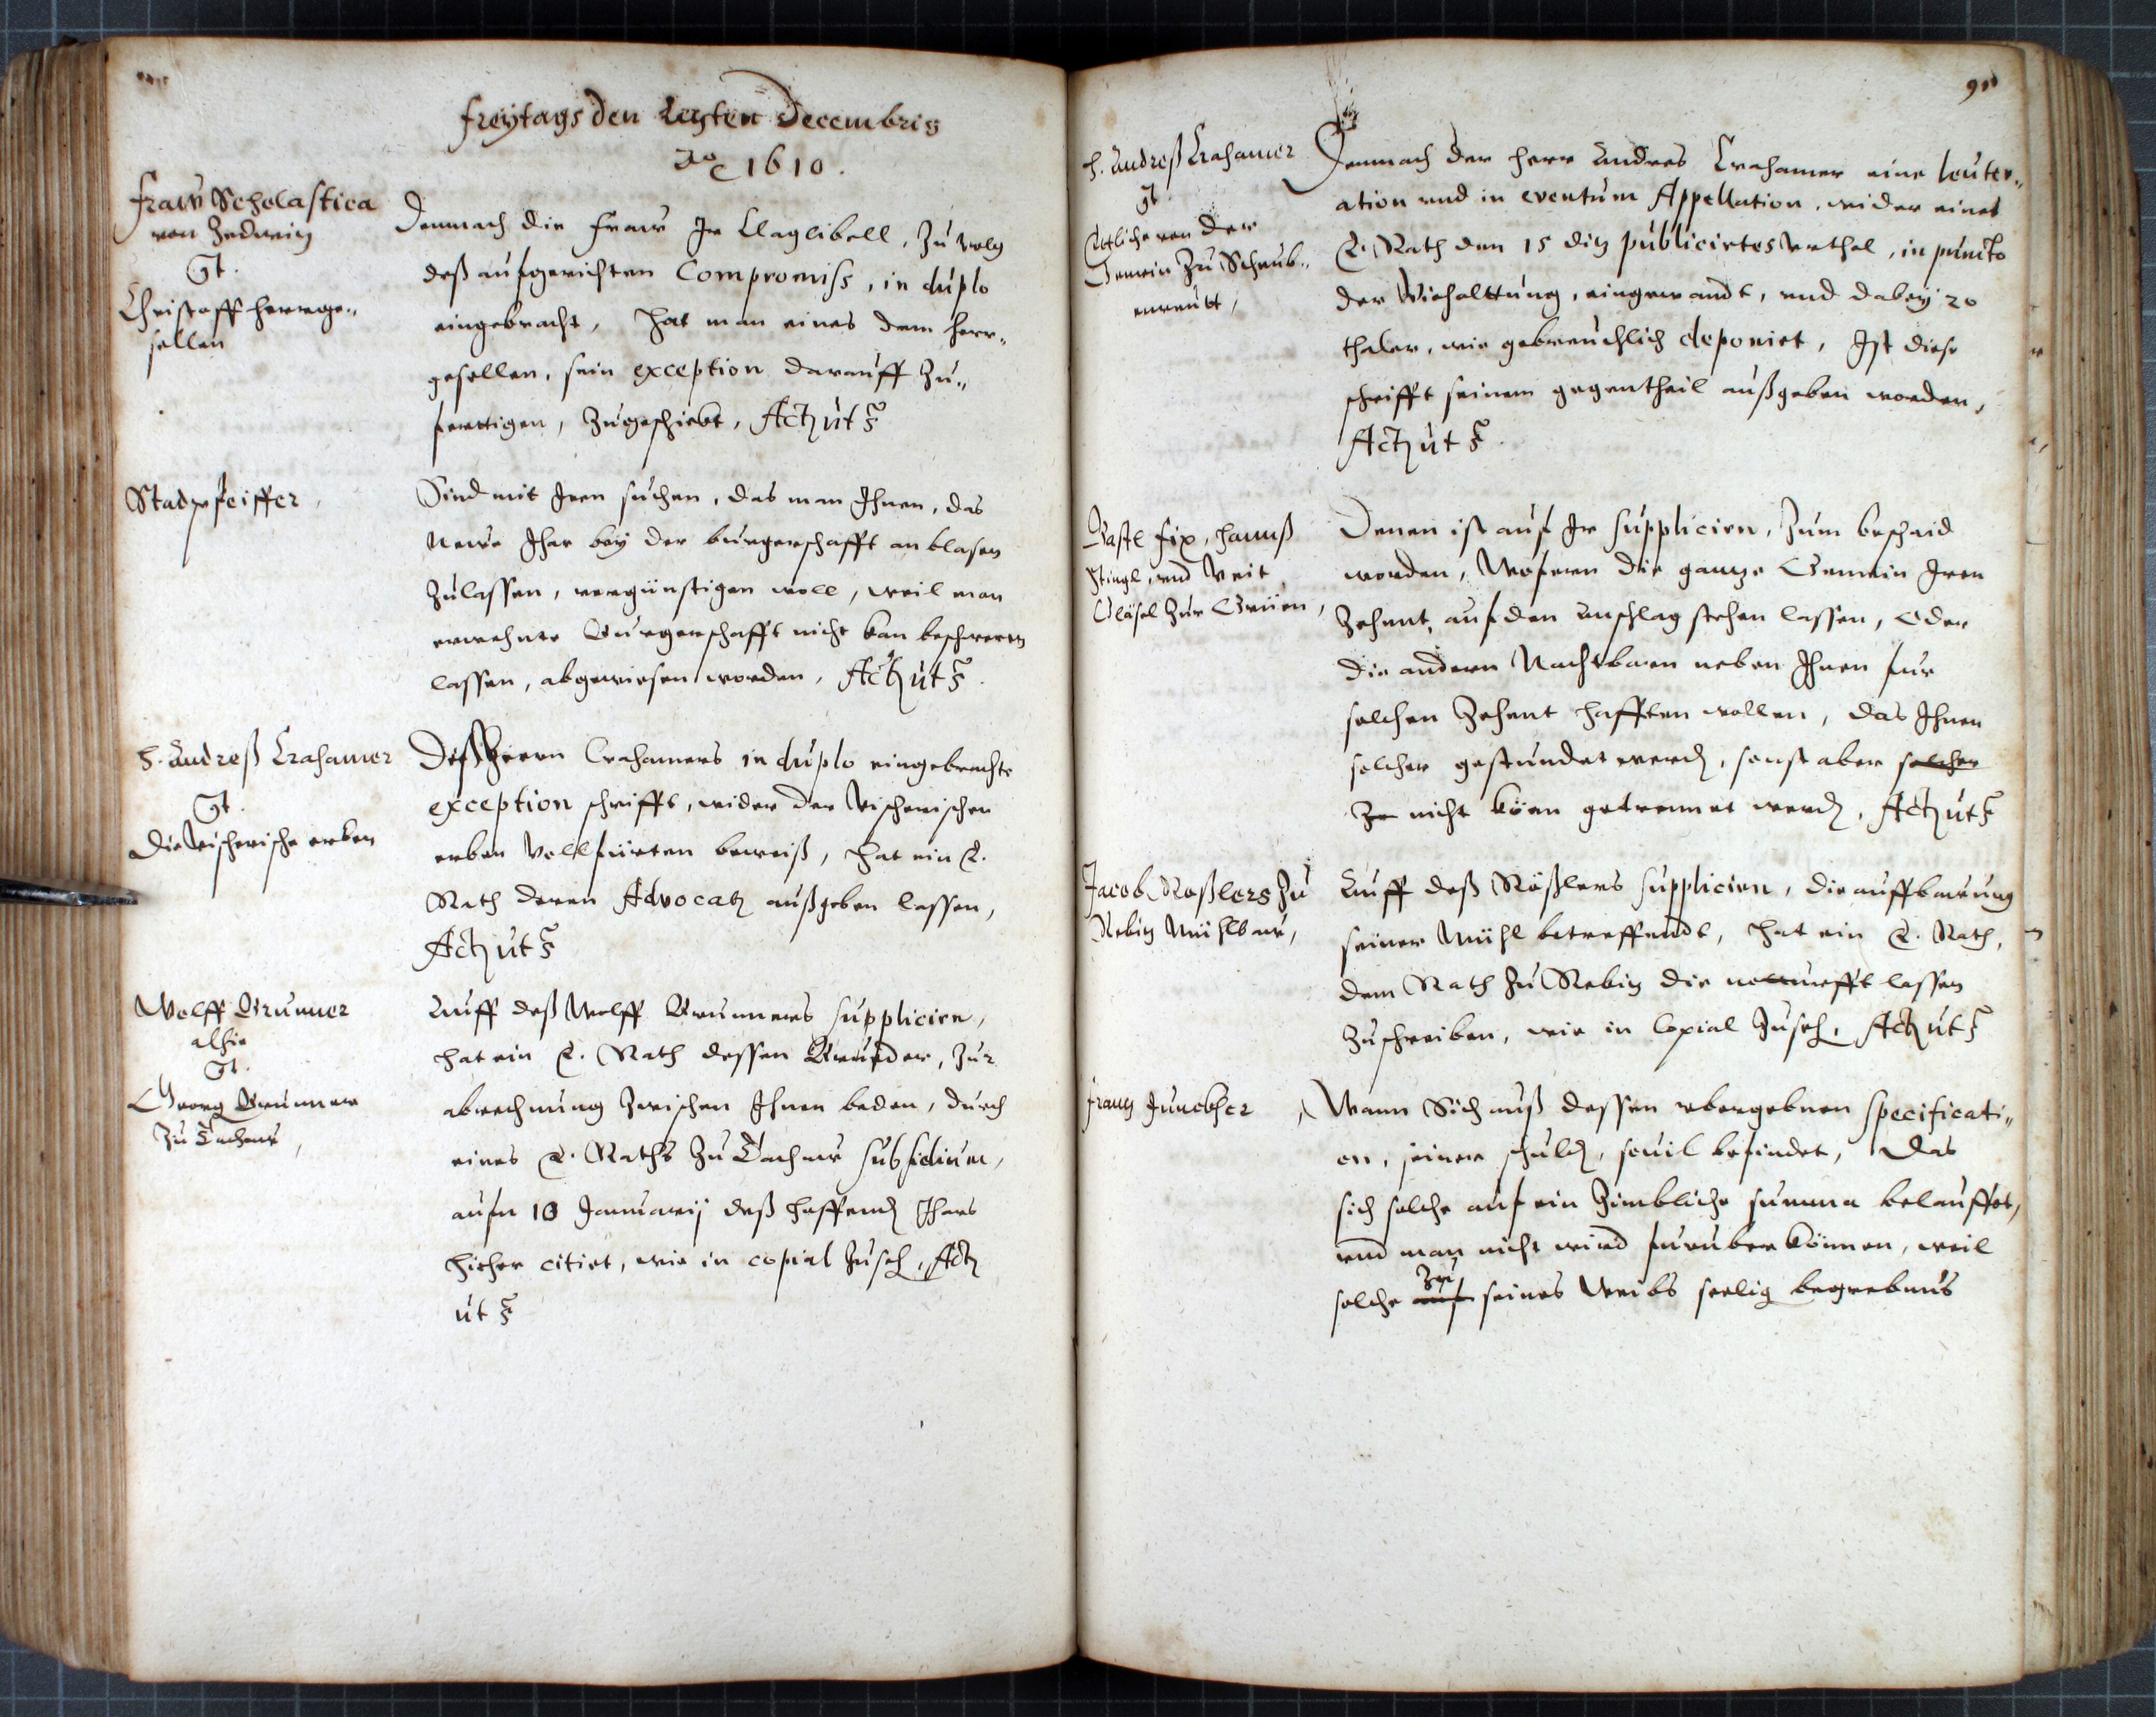 Freÿtags den Letzten Decembris
Ao 1610.
Fraw Scholastica
von Zedwitz
Gt.
Christoff Herrnge„
sellen
Demnach die Fraw Ir Claglibell, zu volg
deß aufgerichten Compromiss, in duplo
eingebracht, hat man eines dem Herrn„
gesellen, sein exception darauff zu„
fertigen, zugeschickt, Actz ut s
Stadpfeiffer,
Sind mit Iren suchen, das man Ihnen, das
Newe Ihar beÿ der burgerschafft an blasen
zulassen, vergünstigen woll, weil man
ermelnte Burgerschafft nicht kan beschweren
lassen, abgewiesen worden, Actz ut s.
H. Andreß Crahamer
Gt.
Die Vischerische erben
Deß Herrn Crahamers in duplo eingebrachte
exception schrifft, wider der Vischerischen
erben Vollfürten beweiß, hat ein E.
Rath deren Advocatz außgeben lassen,
Actz ut s
Wolff Brunner
alhie
Gt.
Georg Brunner
zu Tachaw,
Auff deß Wolff Brunners supplicirn,
hat ein E. Rath dessen Bruder, zur
abrechnung zwischen Ihnen beden, durch
eines E. Raths zu Tachaw subsidium,
aufn 10 Januarij deß hoffend Ihars
hieher citirt, wie in copial zuseh, Actz
ut s
H. Andreß Crahamer
Gt.
Etliche von der
Gemein zu Schaub„
Demnach der Herr Andres Crahamer eine leuter„
ation und in eventum Appellation, wider eines
E. Rath den 15 ditz publicirtes Urthel, in puncto
der Viehalttung, eingewandt, und dabeÿ 20
thaler, wie gebreuchlich deponirt, Ist diese
schrifft seinem gegentheil außgeben worden,
Actz ut s.
Bastl Fix, Hannß
Stingl, und Veit
Gläsel zur Grüen,
Denen ist auf Ir supplicirn, zum beschaid
worden, Wofern die gantze Gemein Iren
Zehent, auf den anschlag stehen lassen, Oder
die andern Nachtbarn neben Ihnen fur
solchen Zehent hafften wollen, das Ihnen
solcher gestundet werd, sonst aber solcher
Ze nicht könn getrennet werd, Actz ut s
Jacob Roßlers zu
Rebitz Mühlbau,
Auff deß Rößlers supplicirn, die auffbauung
seiner Mühl betreffendt, hat ein E. Rath,
dem Rath zu Rebitz die notturfft lassen
zuschreiben, wie in Copial zuseh. Actz ut s
Frantz Junckher
Wann Sich auß dessen ubergebnen specificati„
on, seiner schuld, souil befindet, Das
sich solche auf ein zimbliche summa belauffet,
und man nicht wird furuber können, weil
solche auf zu seines Weibs seelig begrebnus